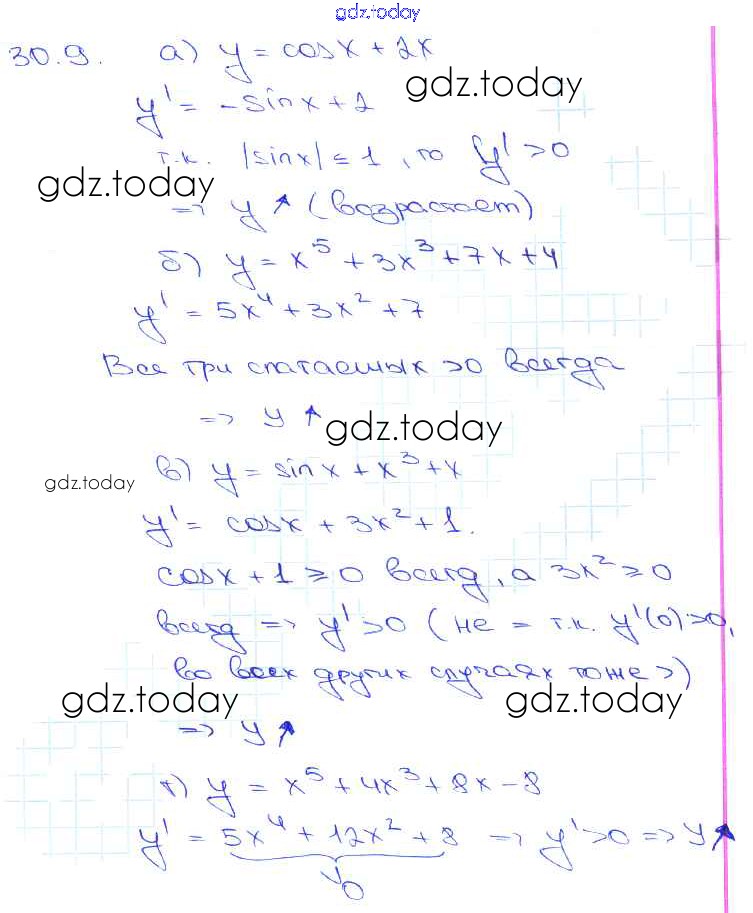 gdz.today
30.9. а) y = cosx + 2x
gdz.today
y' = -sinx + 2
т.к. |sinx| ≤ 1, то y' > 0
gdz.today
=> y ↑ (возрастает)
б) y = x⁵ + 3x³ + 7x + 4
y' = 5x⁴ + 3x² + 7
Все три слагаемых >0 всегда
=> y ↑
gdz.today
в) y = sinx + x³ + x
gdz.today
y' = cosx + 3x² + 1.
cosx + 1 ≥ 0 всегд, а 3x² ≥ 0
всегд => y' > 0 (не = т.к. y'(0) > 0,
во всех других случаях тоже >)
gdz.today gdz.today
=> y ↑
г) y = x⁵ + 4x³ + 8x - 8
y' = 5x⁴ + 12x² + 8 => y' > 0 => y ↑
∨
0